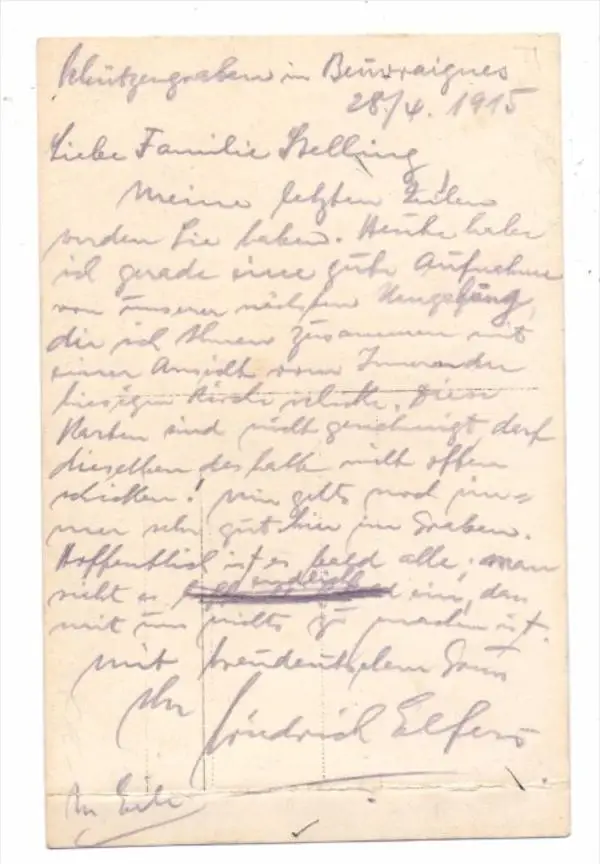 Schützengraben in Beuvraignes
28./4. 1915
Liebe Familie Stelling
Meine letzten Zeilen
werden Sie haben. Heute habe
ich gerade eine gute Aufnahme
von unserer nächsten Umgebung,
die ich Ihnen zusammen mit
einer Ansicht vom Innern der
hiesigen Kirche schicke. Diese
Karten sind nicht genehmigt, darf
dieselben deshalb nicht offen
schicken! Mir gehts noch im=
mer sehr gut hier im Graben.
Hoffentlich ist es bald alle; man
sieht es endlich ein, das
mit uns nichts zu machen ist.
Mit treudeutschem Gruss
Ihr Friedrich Elfers
In Eile